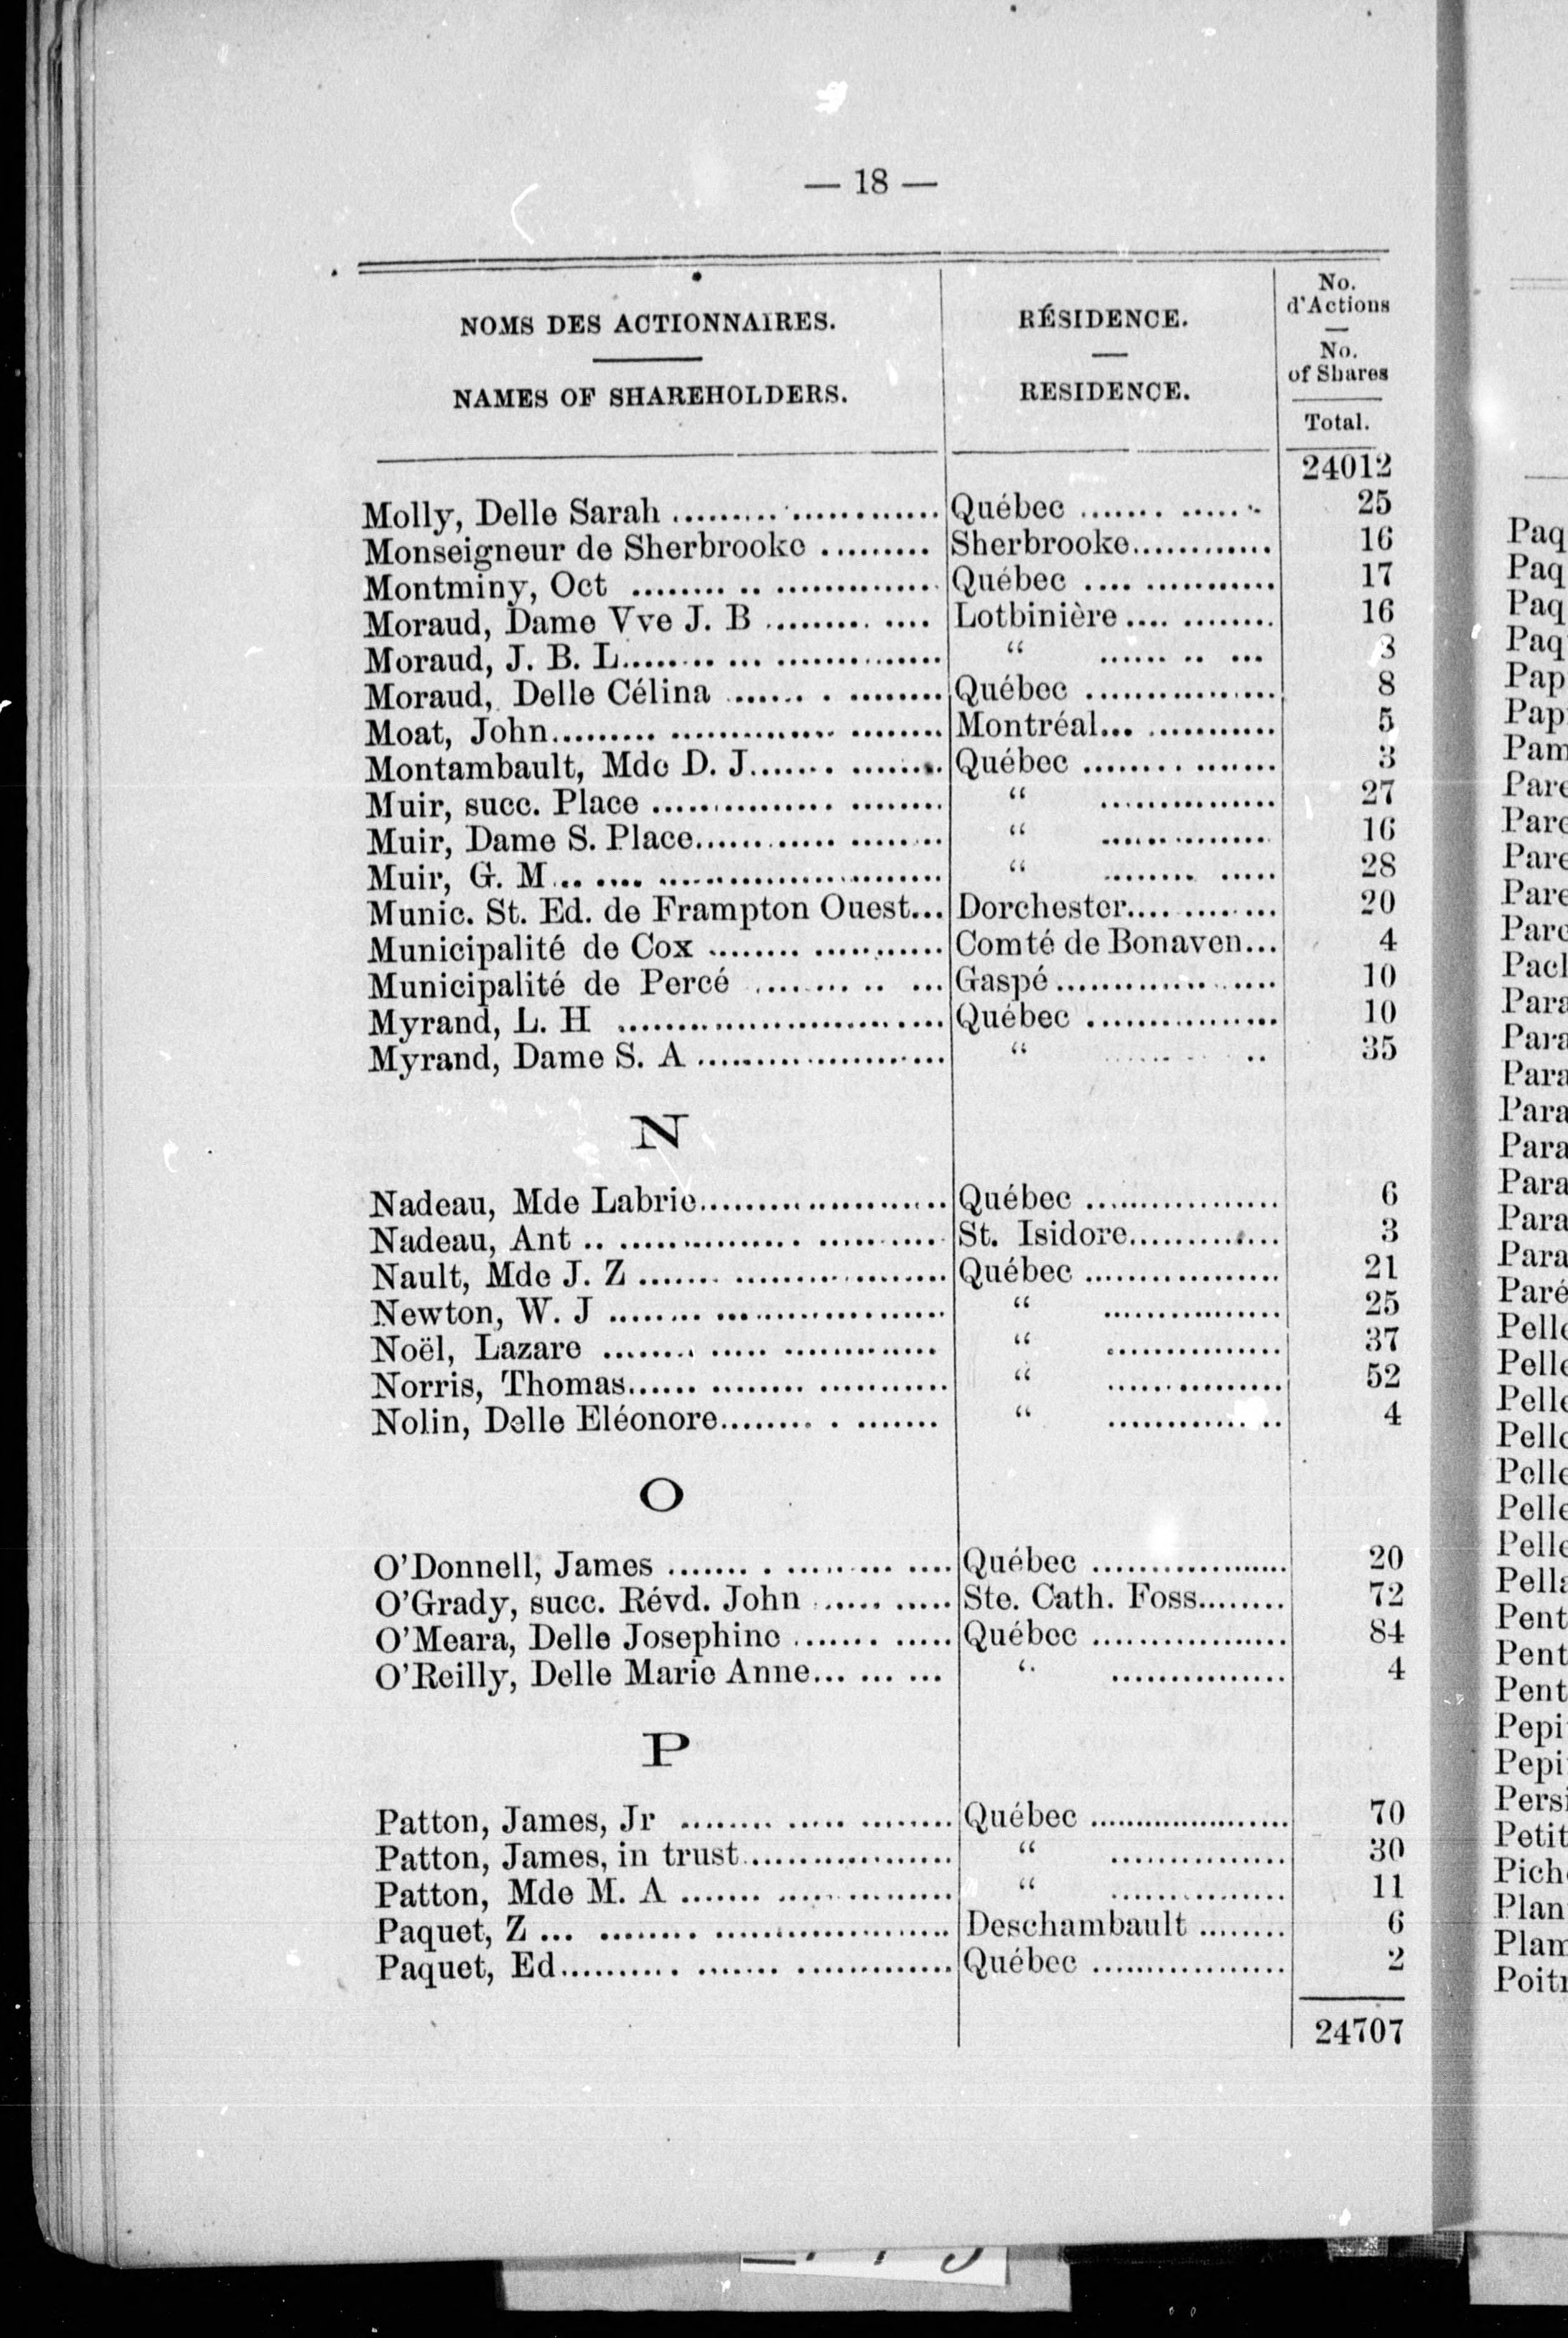 — 18 —
NOMS DES ACTIONNAIRES.
NAMES OF SHAREHOLDERS.
RÉSIDENCE.
RESIDENCE.
No.
d'Actions
No.
of Shares
Total.
24012
Molly, Delle Sarah ........................ Québec ............. 25
Monseigneur de Sherbrooke ......... Sherbrooke............ 16
Montminy, Oct ........................ Québec ............... 17
Moraud, Dame Vve J. B ............. Lotbinière ............ 16
Moraud, J. B. L........................ “ ............ 3
Moraud, Delle Célina ............... Québec ............... 8
Moat, John........................ Montréal............... 5
Montambault, Mde D. J............... Québec ............... 3
Muir, succ. Place ........................ “ ............... 27
Muir, Dame S. Place..................... “ ............... 16
Muir, G. M........................ “ ............... 28
Munic. St. Ed. de Frampton Ouest... Dorchester............... 20
Municipalité de Cox ..................... Comté de Bonaven... 4
Municipalité de Percé ............... Gaspé.................. 10
Myrand, L. H ........................ Québec ............... 10
Myrand, Dame S. A ..................... “ ............ 35
N
Nadeau, Mde Labrie..................... Québec ............... 6
Nadeau, Ant ........................ St. Isidore............ 3
Nault, Mde J. Z ........................ Québec ............... 21
Newton, W. J ........................ “ ............... 25
Noël, Lazare ........................ “ ............... 37
Norris, Thomas........................ “ ............... 52
Nolin, Delle Eléonore.................. “ ............... 4
O
O'Donnell, James ..................... Québec ............... 20
O'Grady, succ. Révd. John ............ Ste. Cath. Foss........ 72
O'Meara, Delle Josephine ............ Québec ............... 84
O'Reilly, Delle Marie Anne......... “ ............... 4
P
Patton, James, Jr ..................... Québec ............... 70
Patton, James, in trust.................. “ ............... 30
Patton, Mde M. A ..................... “ ............... 11
Paquet, Z ........................ Deschambault ........ 6
Paquet, Ed........................ Québec ............... 2
24707
Paq
Paq
Paq
Paq
Pap
Pap
Pam
Pare
Pare
Pare
Pare
Pare
Pacl
Para
Para
Para
Para
Para
Para
Para
Para
Paré
Pelle
Pelle
Pelle
Pelle
Pelle
Pelle
Pelle
Pella
Pent
Pent
Pent
Pepi
Pepi
Persi
Petit
Pich
Plan
Plam
Poit